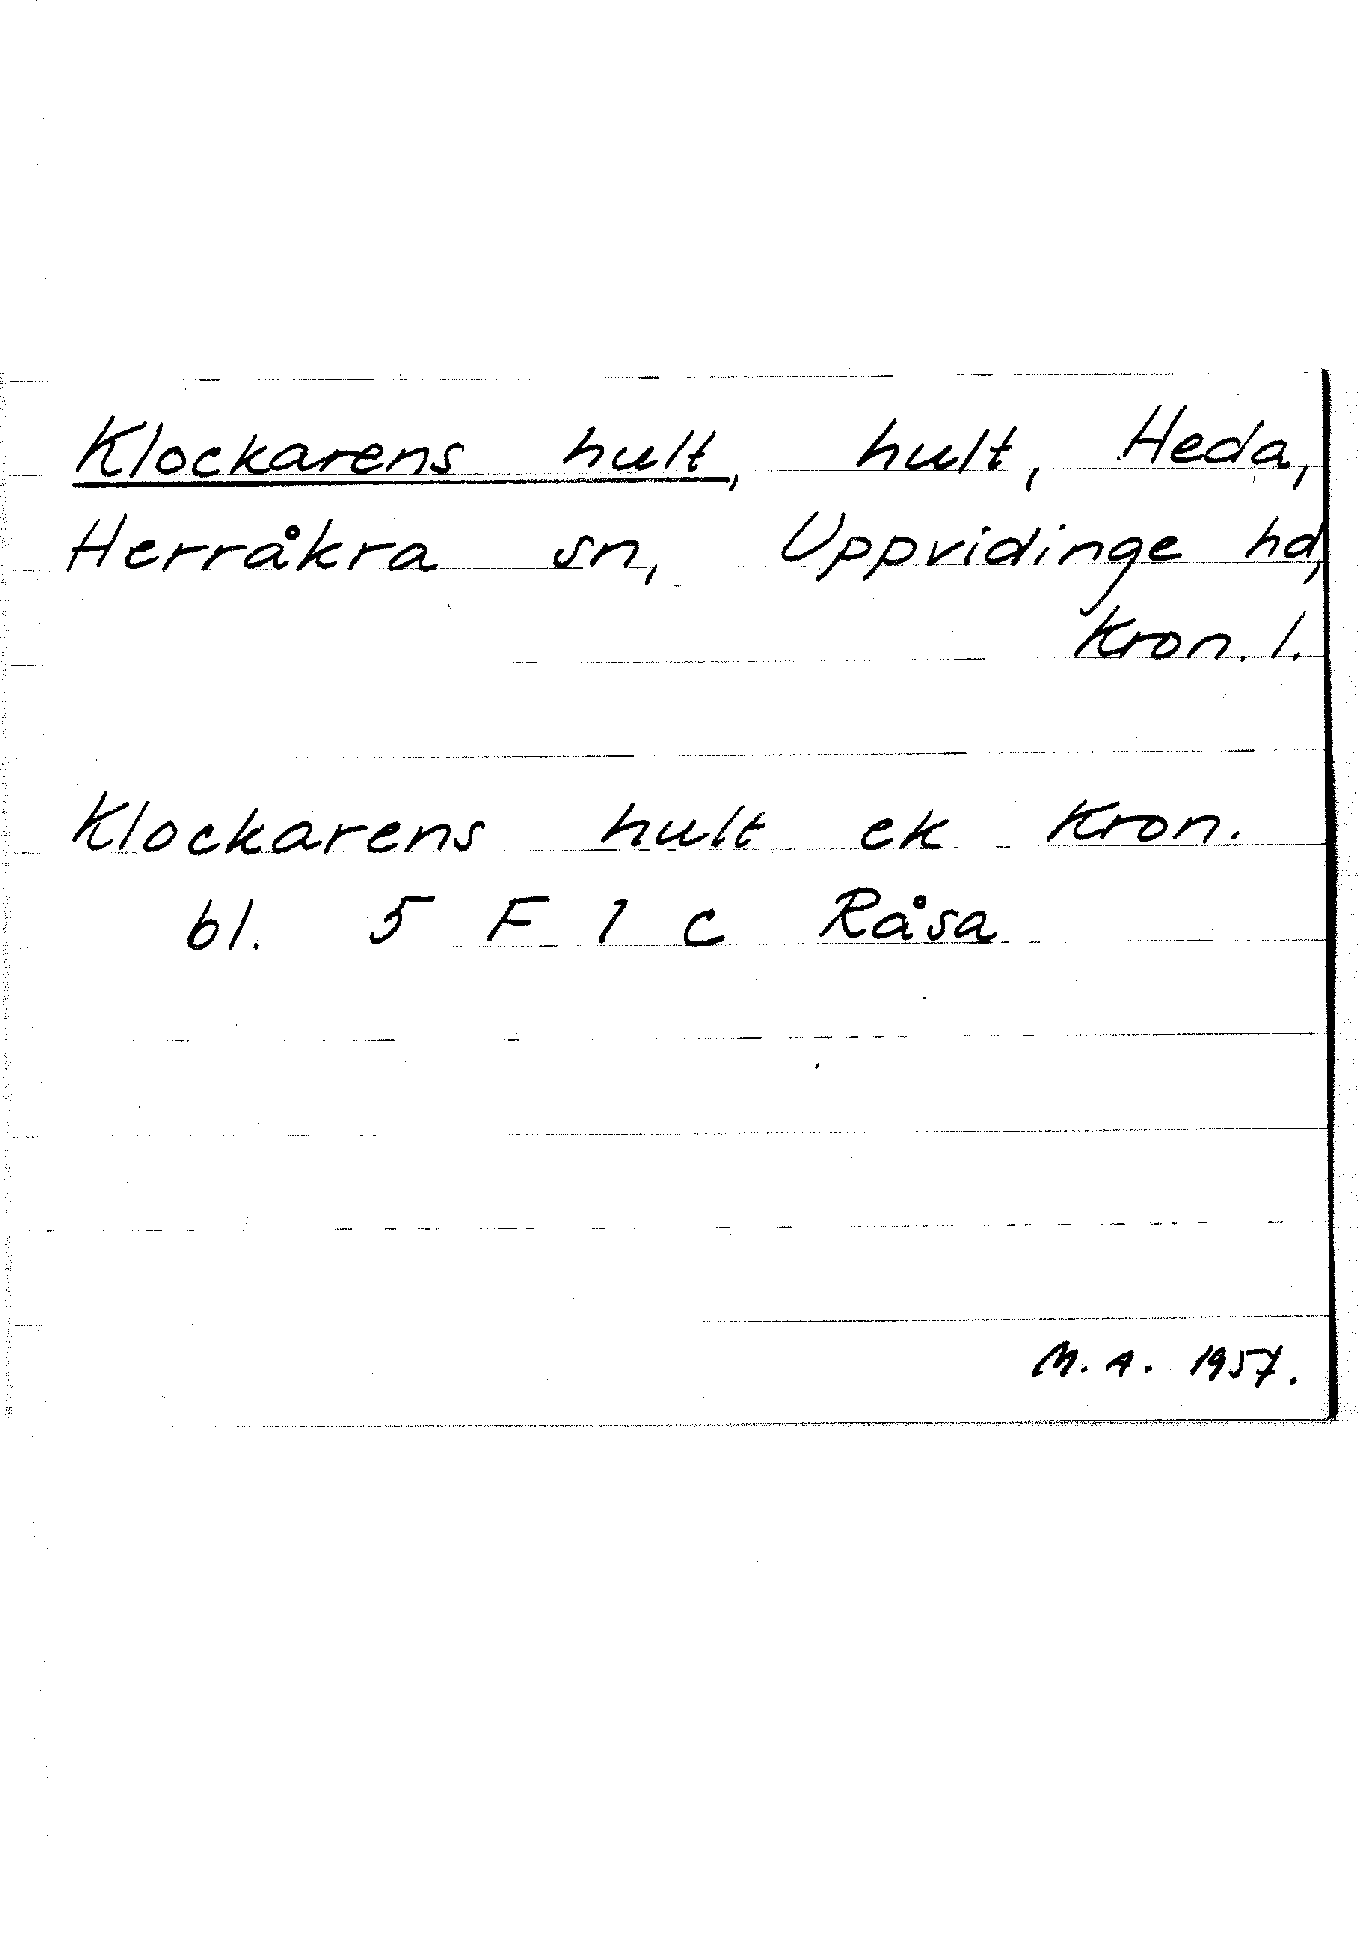 Klockarens hult, hult, Heda,
Herråkra sn, Uppvidinge hd,
Kron. l.
Klockarens hult ek Kron.
bl. 5 F 1 c Råsa
M. A. 1957.